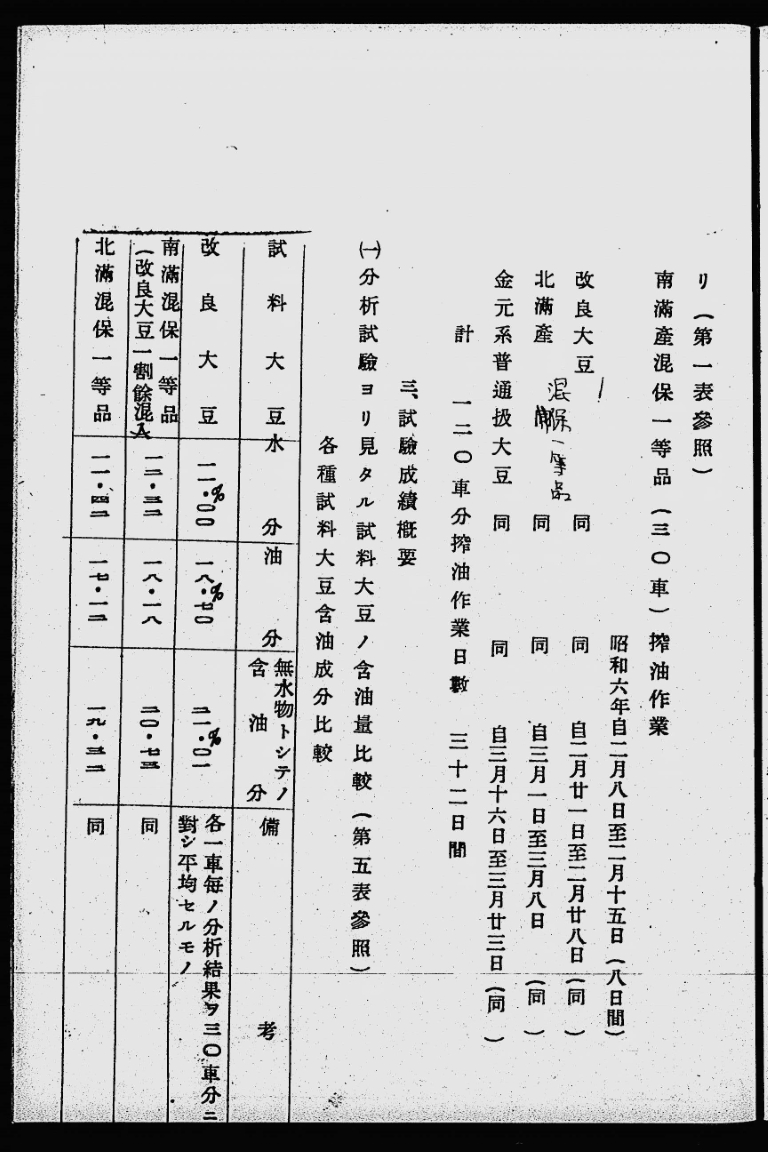 リ(第一表參照)
南滿產混保一等品(三〇車)搾油作業
昭和六年自二月八日至二月十五日(八日間)
改良大豆 同 同 自二月廿一日至二月廿八日(同)
北滿產混保一等品 同 同 自三月一日至三月八日(同)
金元系普通扱大豆 同 同 自三月十六日至三月廿三日(同)
計 一二〇車分搾油作業日數 三十二日間
三、試驗成績槪要
㈠分析試驗ヨリ見タル試料大豆ノ含油量比較(第五表參照)
各種試料大豆含油成分比較
試料大豆 水分 油分 無水物トシテノ含油分 備考
改良大豆 一一・〇〇% 一八・七〇% 二一・〇一% 各一車每ノ分析結果ヲ三〇車分ニ
對シ平均セルモノ
南滿混保一等品
(改良大豆一割餘混入 一二・三二 一八・一八 二〇・七三 同
北滿混保一等品 一一・四二 一七・一二 一九・三二 同